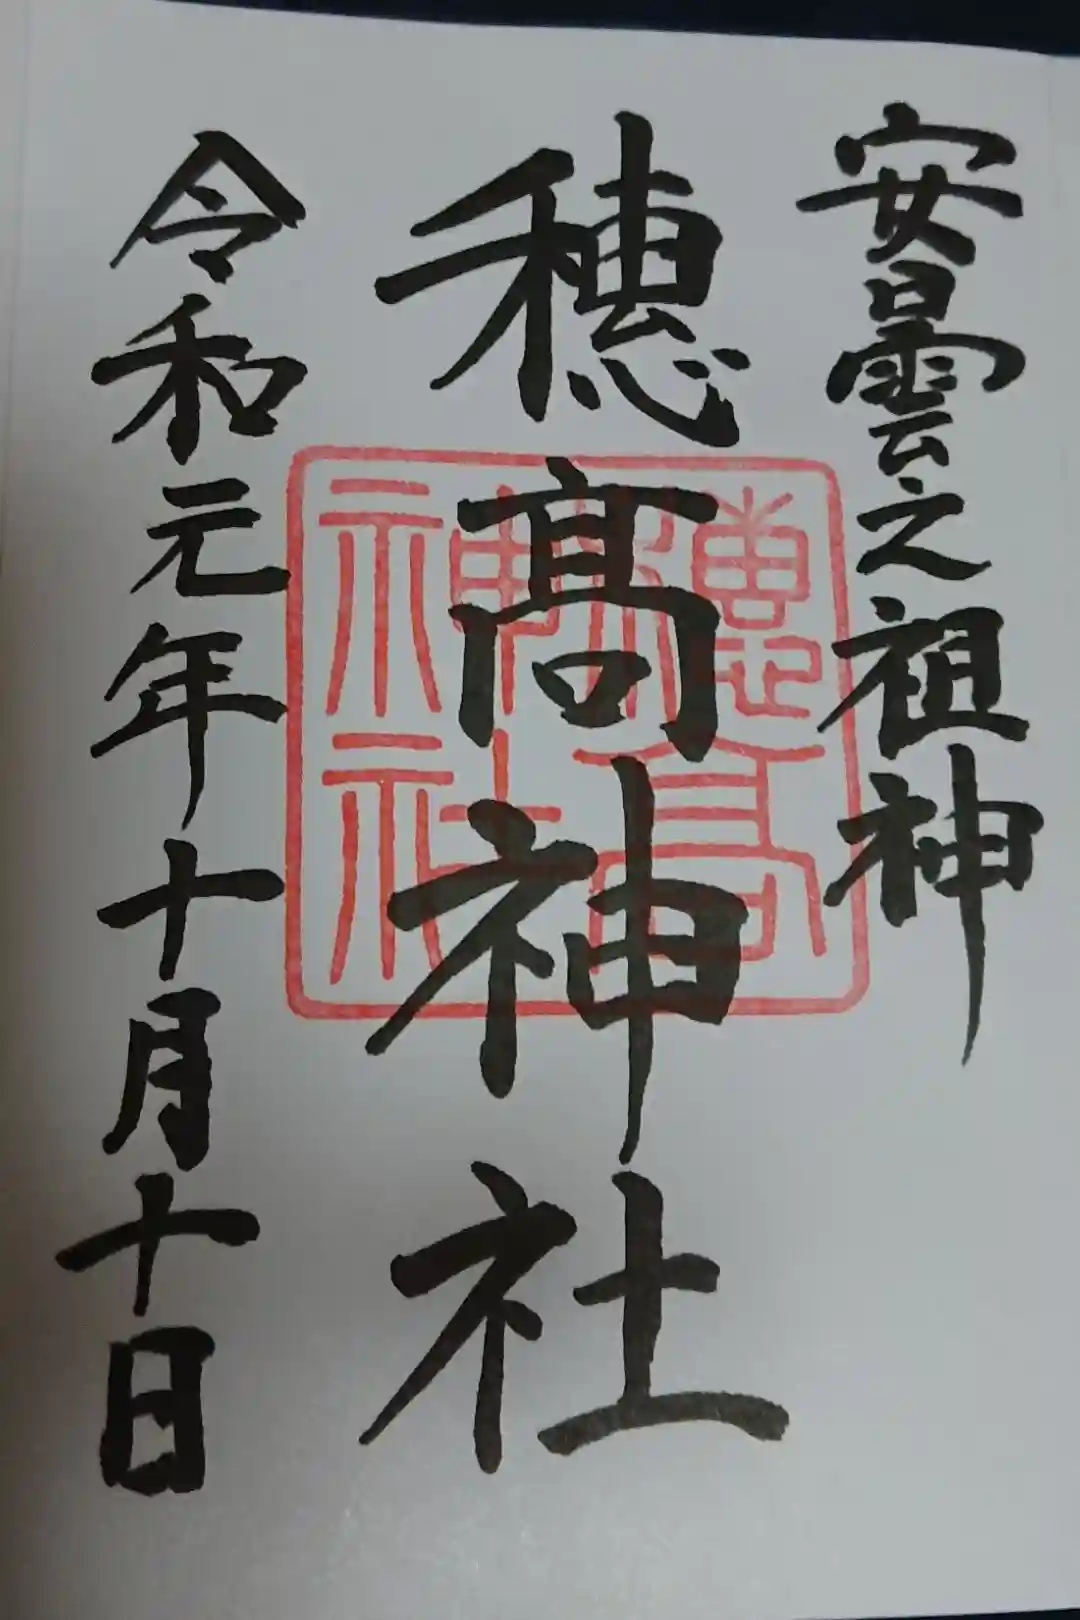 安曇之祖神
穂髙神社
穗高
神社
令和元年十月十日